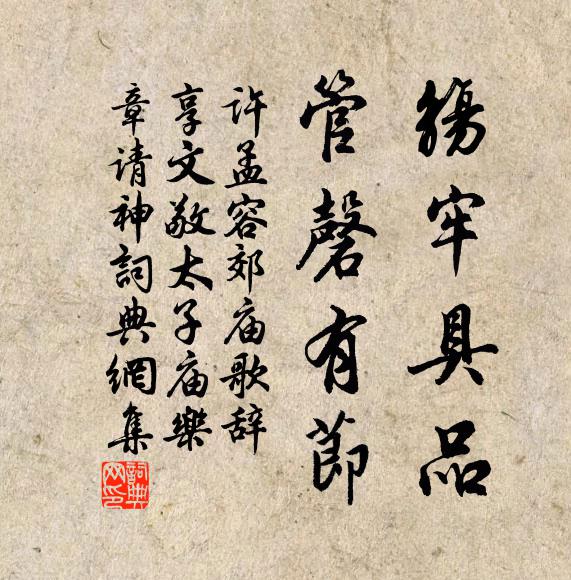 觴牢具品
管磬有節
许孟容郊庙歌辞
享文敬太子庙樂
章请神詞典網集
詞典网印